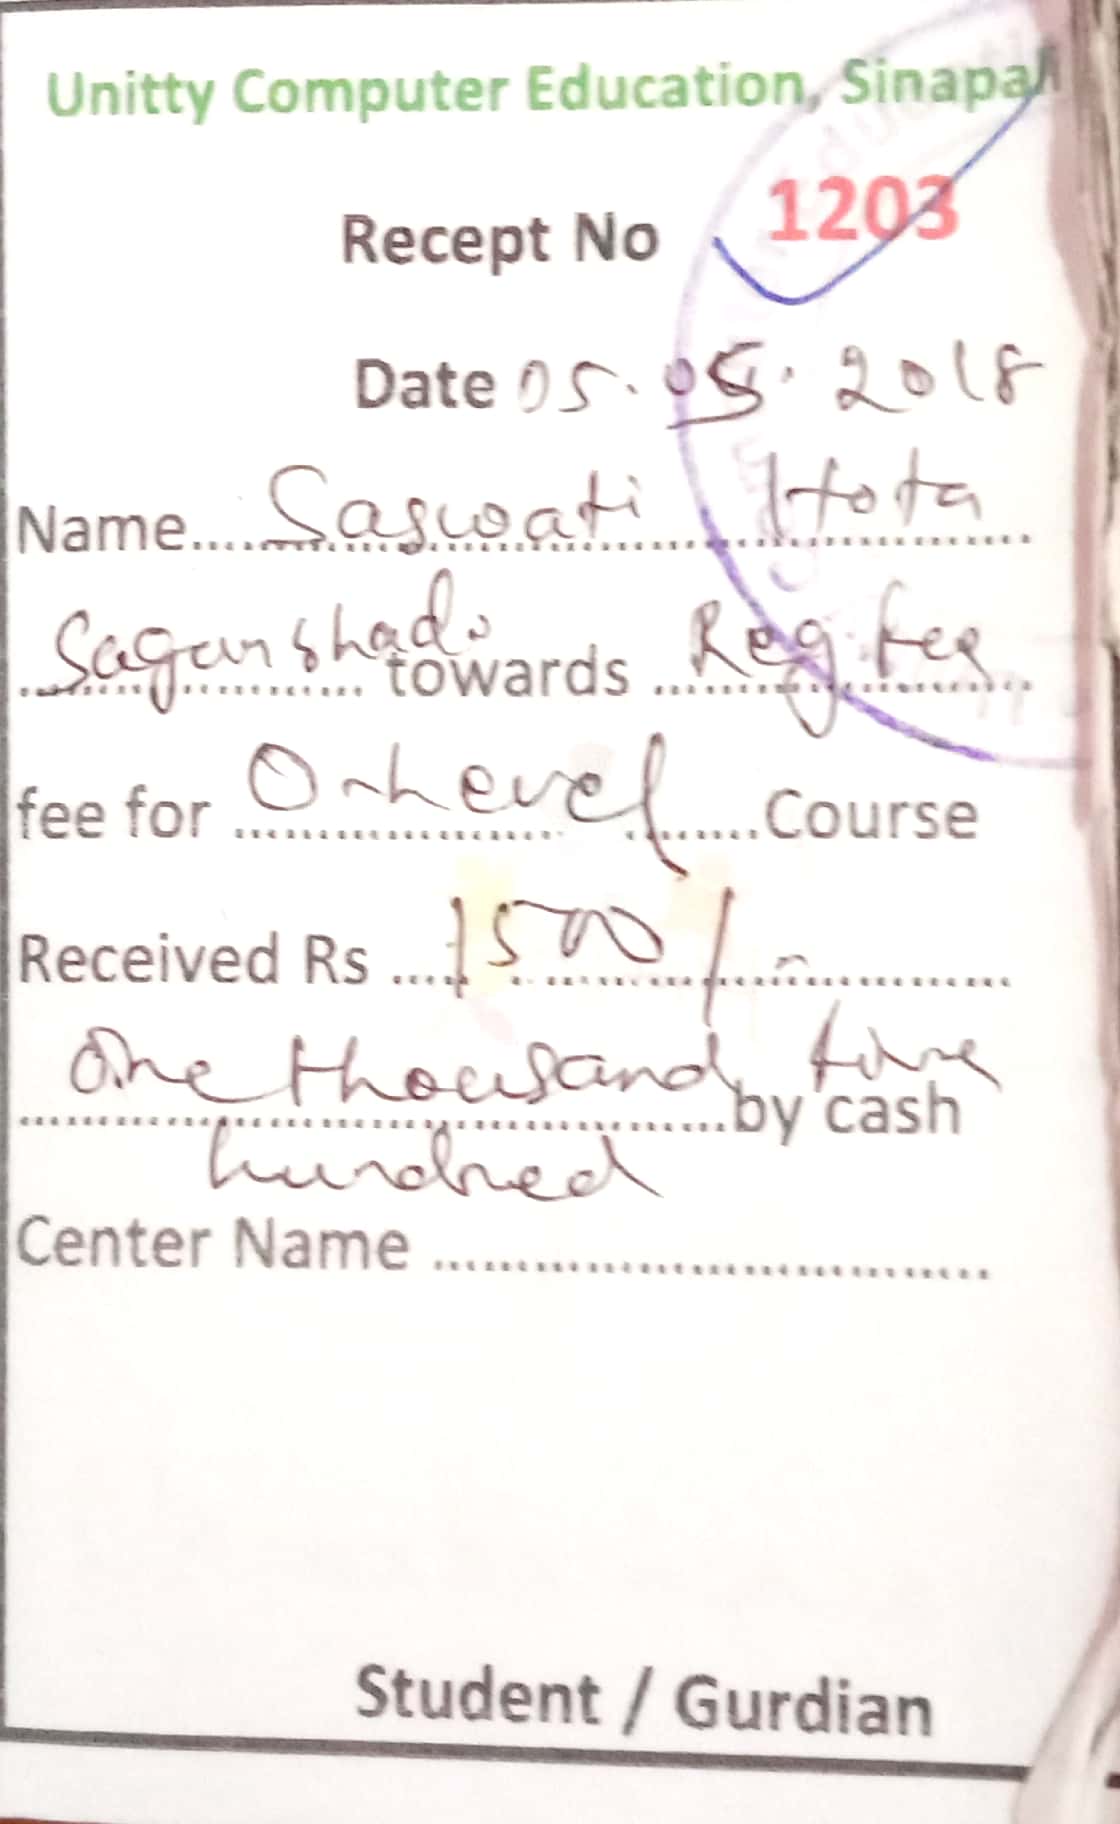 Unitty Computer Education, Sinapali
Recept No 1203
Date 05.05.2018
Name.....Saswati Hota
Sagunshad. towards Reg. fee
fee for O-Level Course
Received Rs 1500/-
One thousand five
by cash
hundred
Center Name ..............................
Student / Gurdian